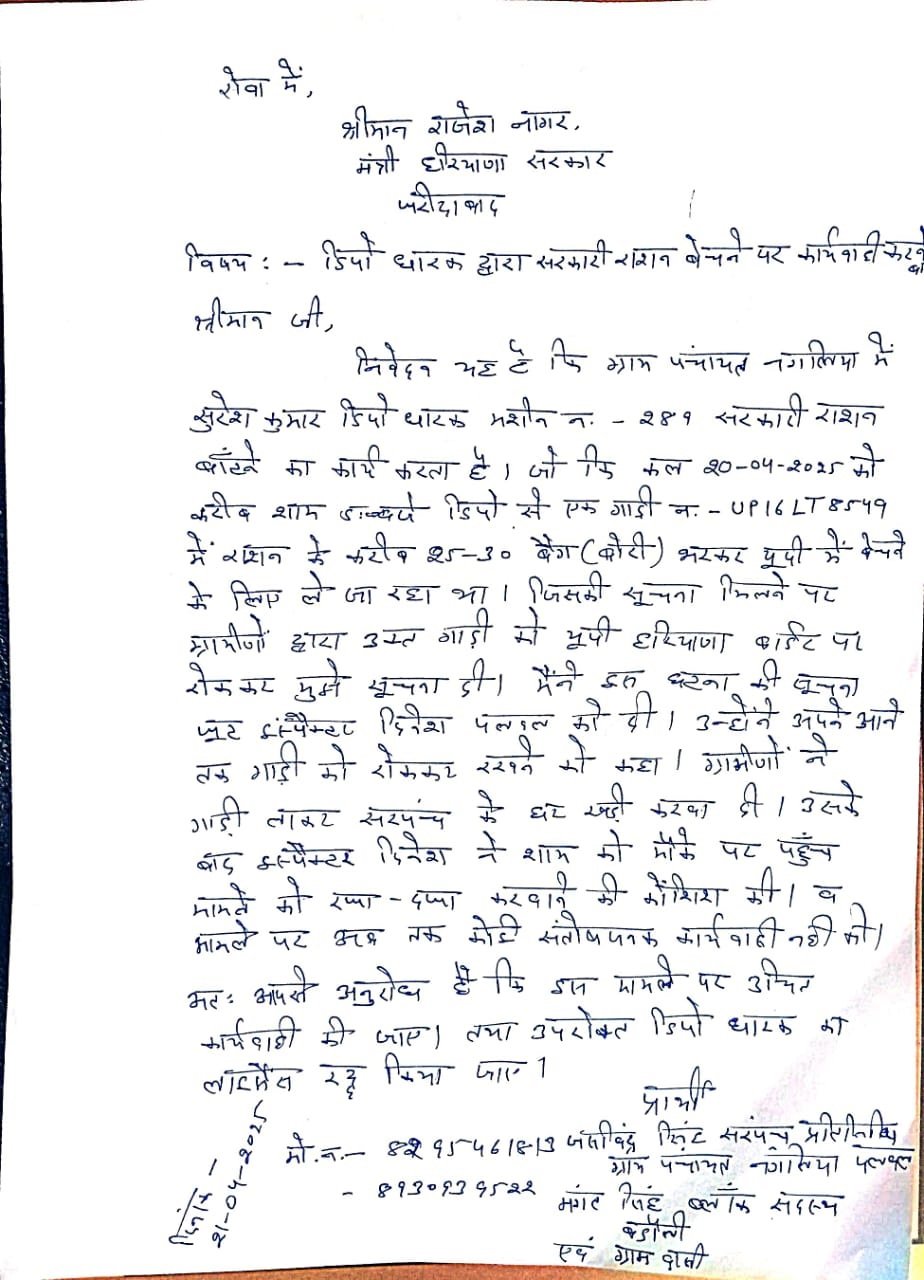 सेवा में,
श्रीमान राजेश नागर,
मंत्री हरियाणा सरकार
फरीदाबाद
विषय : - डिपो धारक द्वारा सरकारी राशन बेचने पर कार्यवाही करने
श्रीमान जी,
निवेदन यह है कि ग्राम पंचायत नंगलिया में
सुरेश कुमार डिपो धारक मशीन न. - 289 सरकारी राशन
बाँटने का कार्य करता है। जो कि कल 20-04-2025 को
करीब शाम डिपो से एक गाडी न. - UP16LT8549
में राशन के करीब 25-30 बैग (बोरी) भरकर यूपी में बेचने
के लिए ले जा रहा था। जिसकी सूचना मिलने पर
ग्रामीणों द्वारा उक्त गाडी को यूपी हरियाणा बार्डर पर
रोककर मुझे सूचना दी। मैंने इस घटना की सूचना
फूट इंस्पैक्टर दिनेश पलवल को दी। उन्होंने अपने आने
तक गाड़ी को रोककर रखने को कहा। ग्रामीणों ने
गाड़ी लाकर सरपंच के घर खड़ी करवा दी। उसके
बाद इंस्पैक्टर दिनेश ने शाम को मौके पर पहुँच
मामले को रफा-दफा करवाने की कौशिश की। व
मामले पर अब तक कोई संतोषजनक कार्यवाही नही की।
अतः आपसे अनुरोध है कि इस मामले पर उचित
कार्यवाही की जाए। तथा उपरोक्त डिपो धारक का
लाइसैंस रद्द किया जाए।
प्रार्थी
मो.न.- 8295461813 जसविंद्र सिंह सरपंच प्रतिनिधि
ग्राम पंचायत नंगलिया पलवल
- 8930939522
मंगट सिंह ब्लॉक सदस्य
बडौली
एवं ग्राम वासी
दिनांक -
21-04-2025